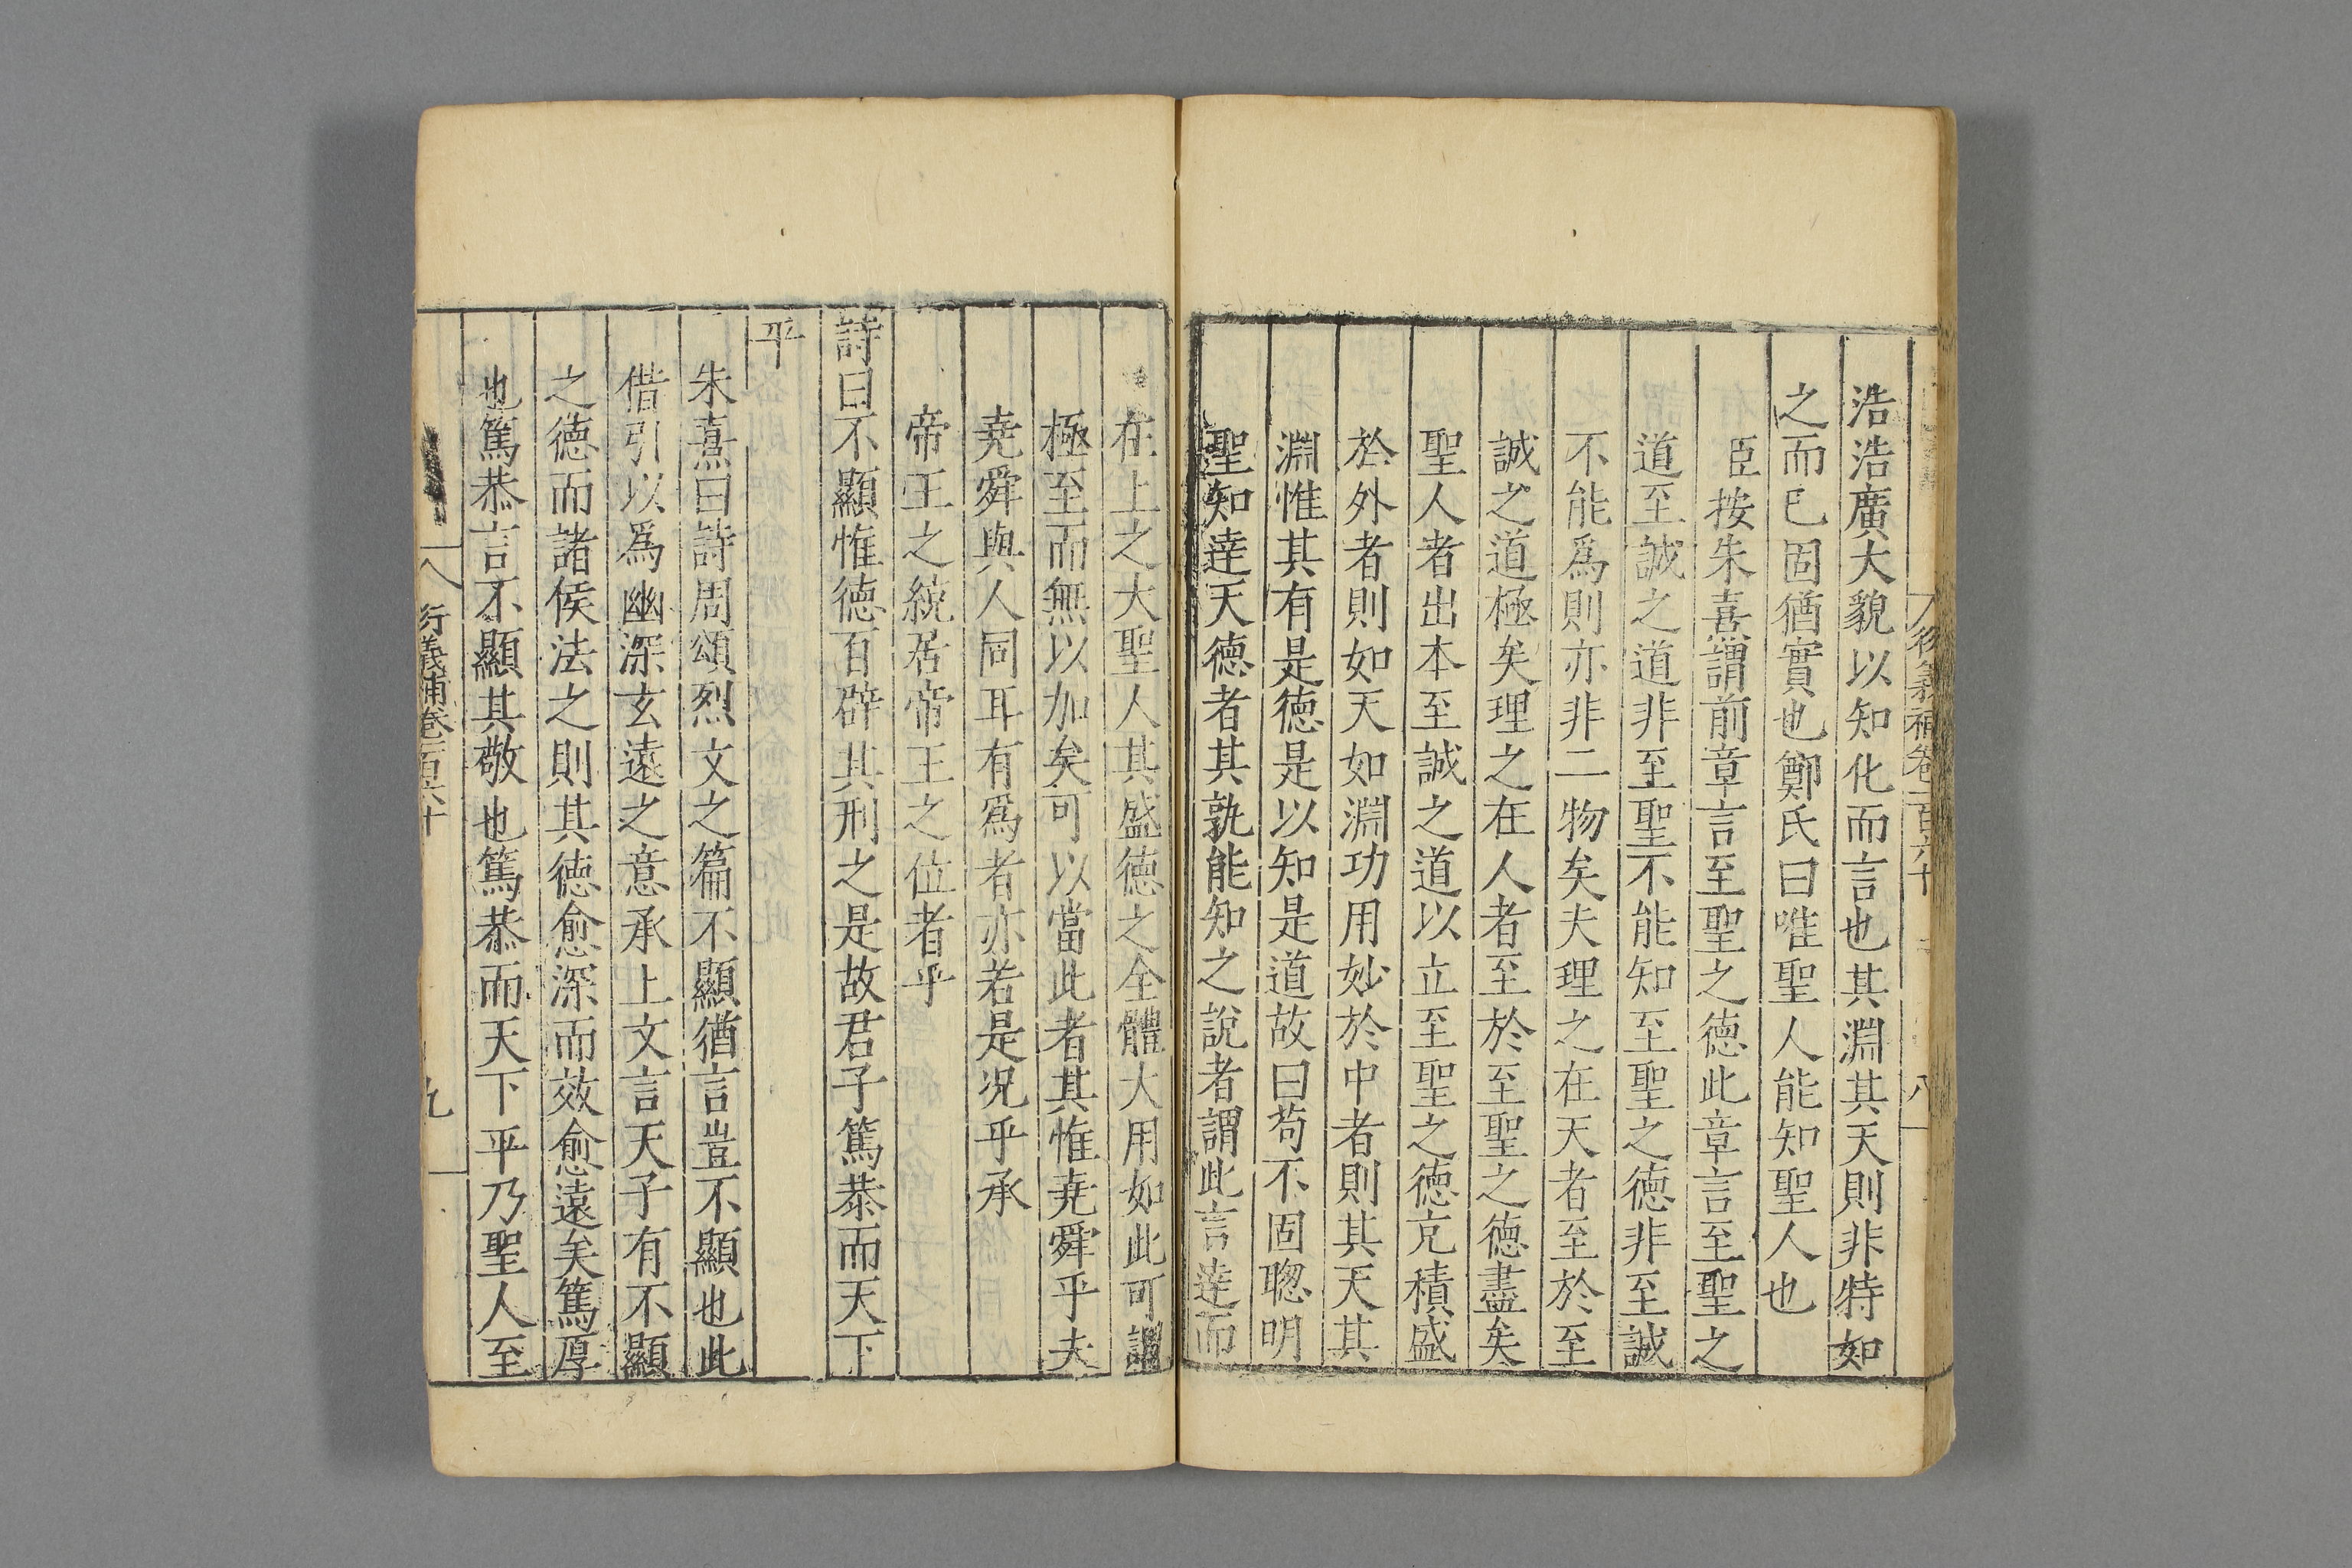 衍義補卷一百六十
八
浩浩廣大貌以知化而言也其淵其天則非特如
之而已固猶實也鄭氏曰唯聖人能知聖人也
臣按朱熹謂前章言至聖之德此章言至聖之
道至誠之道非至聖不能知至聖之德非至誠
不能爲則亦非二物矣夫理之在天者至於至
誠之道極矣理之在人者至於至聖之德盡矣
聖人者出本至誠之道以立至聖之德充積盛
於外者則如天如淵功用妙於中者則其天其
淵惟其有是德是以知是道故曰苟不固聰明
聖知達天德者其孰能知之說者謂此言達而
在上之大聖人其盛德之全體大用如此可謂
極至而無以加矣可以當此者其惟堯舜乎夫
堯舜與人同耳有爲者亦若是况乎承
帝王之統居帝王之位者乎
詩曰不顯惟德百辟其刑之是故君子篤恭而天下
平
朱熹曰詩周頌烈文之篇不顯猶言豈不顯也此
借引以爲幽深玄遠之意承上文言天子有不顯
之德而諸侯法之則其德愈深而效愈遠矣篤厚
也篤恭言不顯其敬也篤恭而天下平乃聖人至
衍義補卷一百六十
九